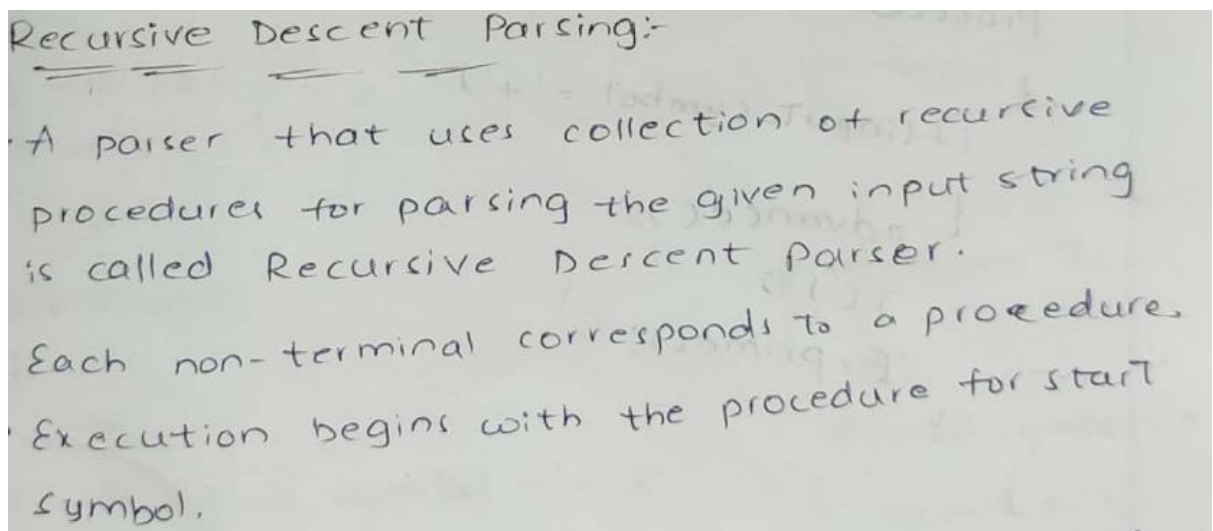 Recursive Descent Parsing:-
· A parser that uses collection of recursive
procedures for parsing the given input string
is called Recursive Descent Parser.
Each non-terminal corresponds to a procedure.
· Execution begins with the procedure for start
symbol.